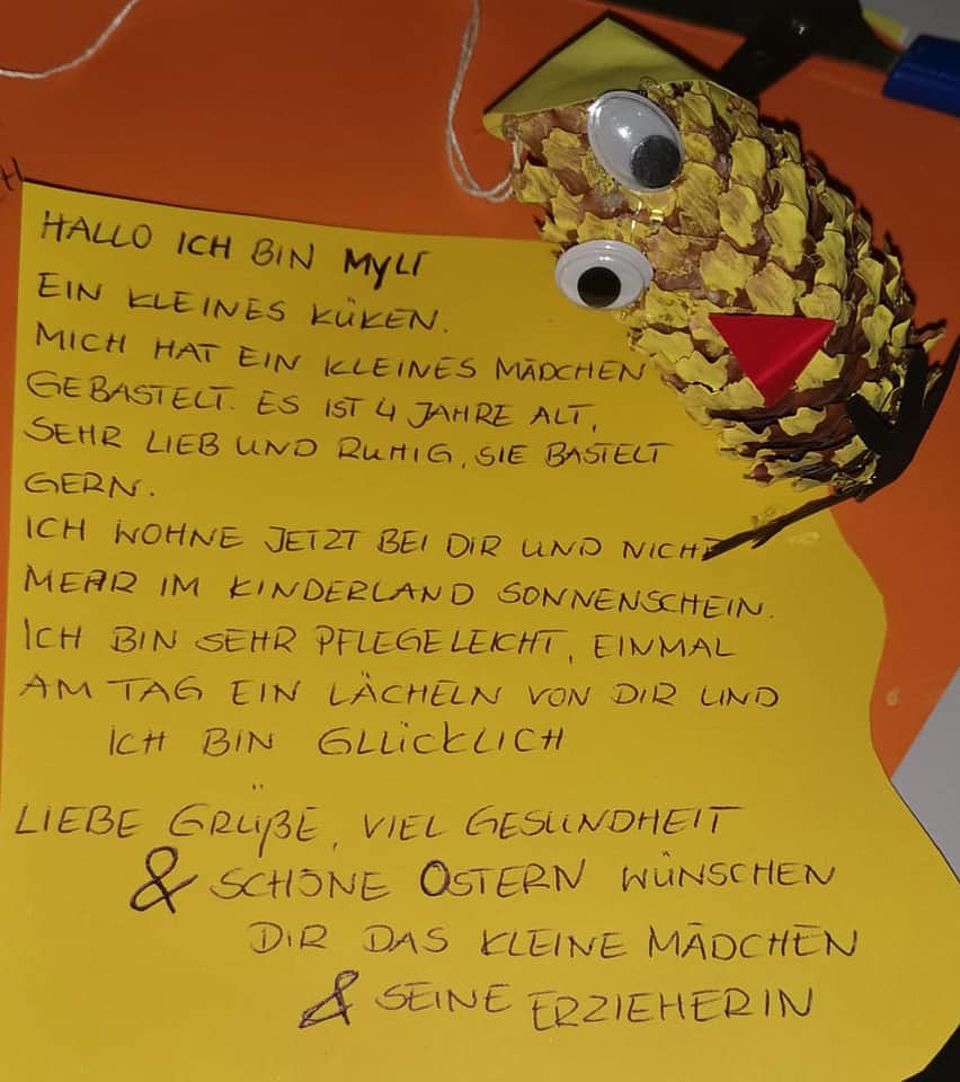 HALLO ICH BIN MYLI
EIN KLEINES KÜKEN.
MICH HAT EIN KLEINES MÄDCHEN
GEBASTELT. ES IST 4 JAHRE ALT,
SEHR LIEB UND RUHIG, SIE BASTELT
GERN.
ICH WOHNE JETZT BEI DIR UND NICHT
MEHR IM KINDERLAND SONNENSCHEIN.
ICH BIN SEHR PFLEGELEICHT, EINMAL
AM TAG EIN LÄCHELN VON DIR UND
ICH BIN GLÜCKLICH
LIEBE GRÜßE, VIEL GESUNDHEIT
& SCHÖNE OSTERN WÜNSCHEN
DIR DAS KLEINE MÄDCHEN
& SEINE ERZIEHERIN